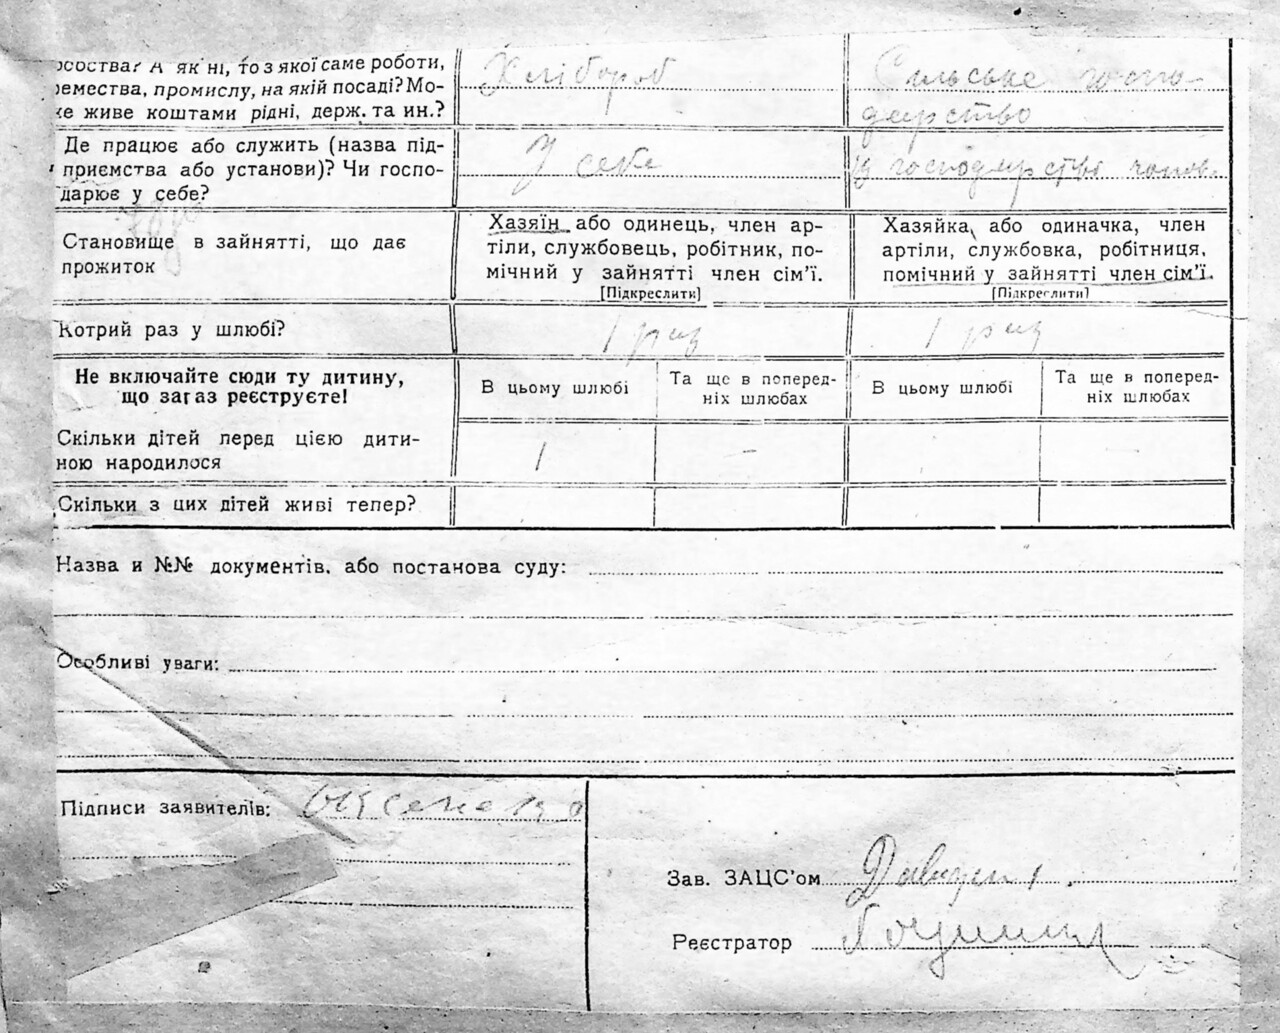 якні, то з якої саме роботи, Хлібороб Сильське госпо-
ремества, промислу, на якій посаді? Мо-
же живе коштами рідні, держ. та ин.? дарство
Де працює або служить (назва під-
приємства або установи)? Чи госпо- У себе в господарстві чолов.
дарює у себе?
Становище в зайнятті, що дає
прожиток
Хазяїн або одинець, член ар-
тіли, службовець, робітник, по-
мічний у зайнятті член сім'ї.
[Підкреслити]
Хазяйка або одиначка, член
артіли, службовка, робітниця,
помічний у зайнятті член сім'ї.
[Підкреслити]
Котрий раз у шлюбі? 1 раз 1 раз
Не включайте сюди ту дитину,
що загаз реєструєте!
В цьому шлюбі
Та ще в поперед-
ніх шлюбах
В цьому шлюбі
Та ще в поперед-
ніх шлюбах
Скільки дітей перед цією дити-
ною народилося 1 -
Скільки з цих дітей живі тепер?
Назва и №№ документів, або постанова суду:
Особливі уваги:
Підписи заявителів:
Зав. ЗАЦС'ом
Реєстратор